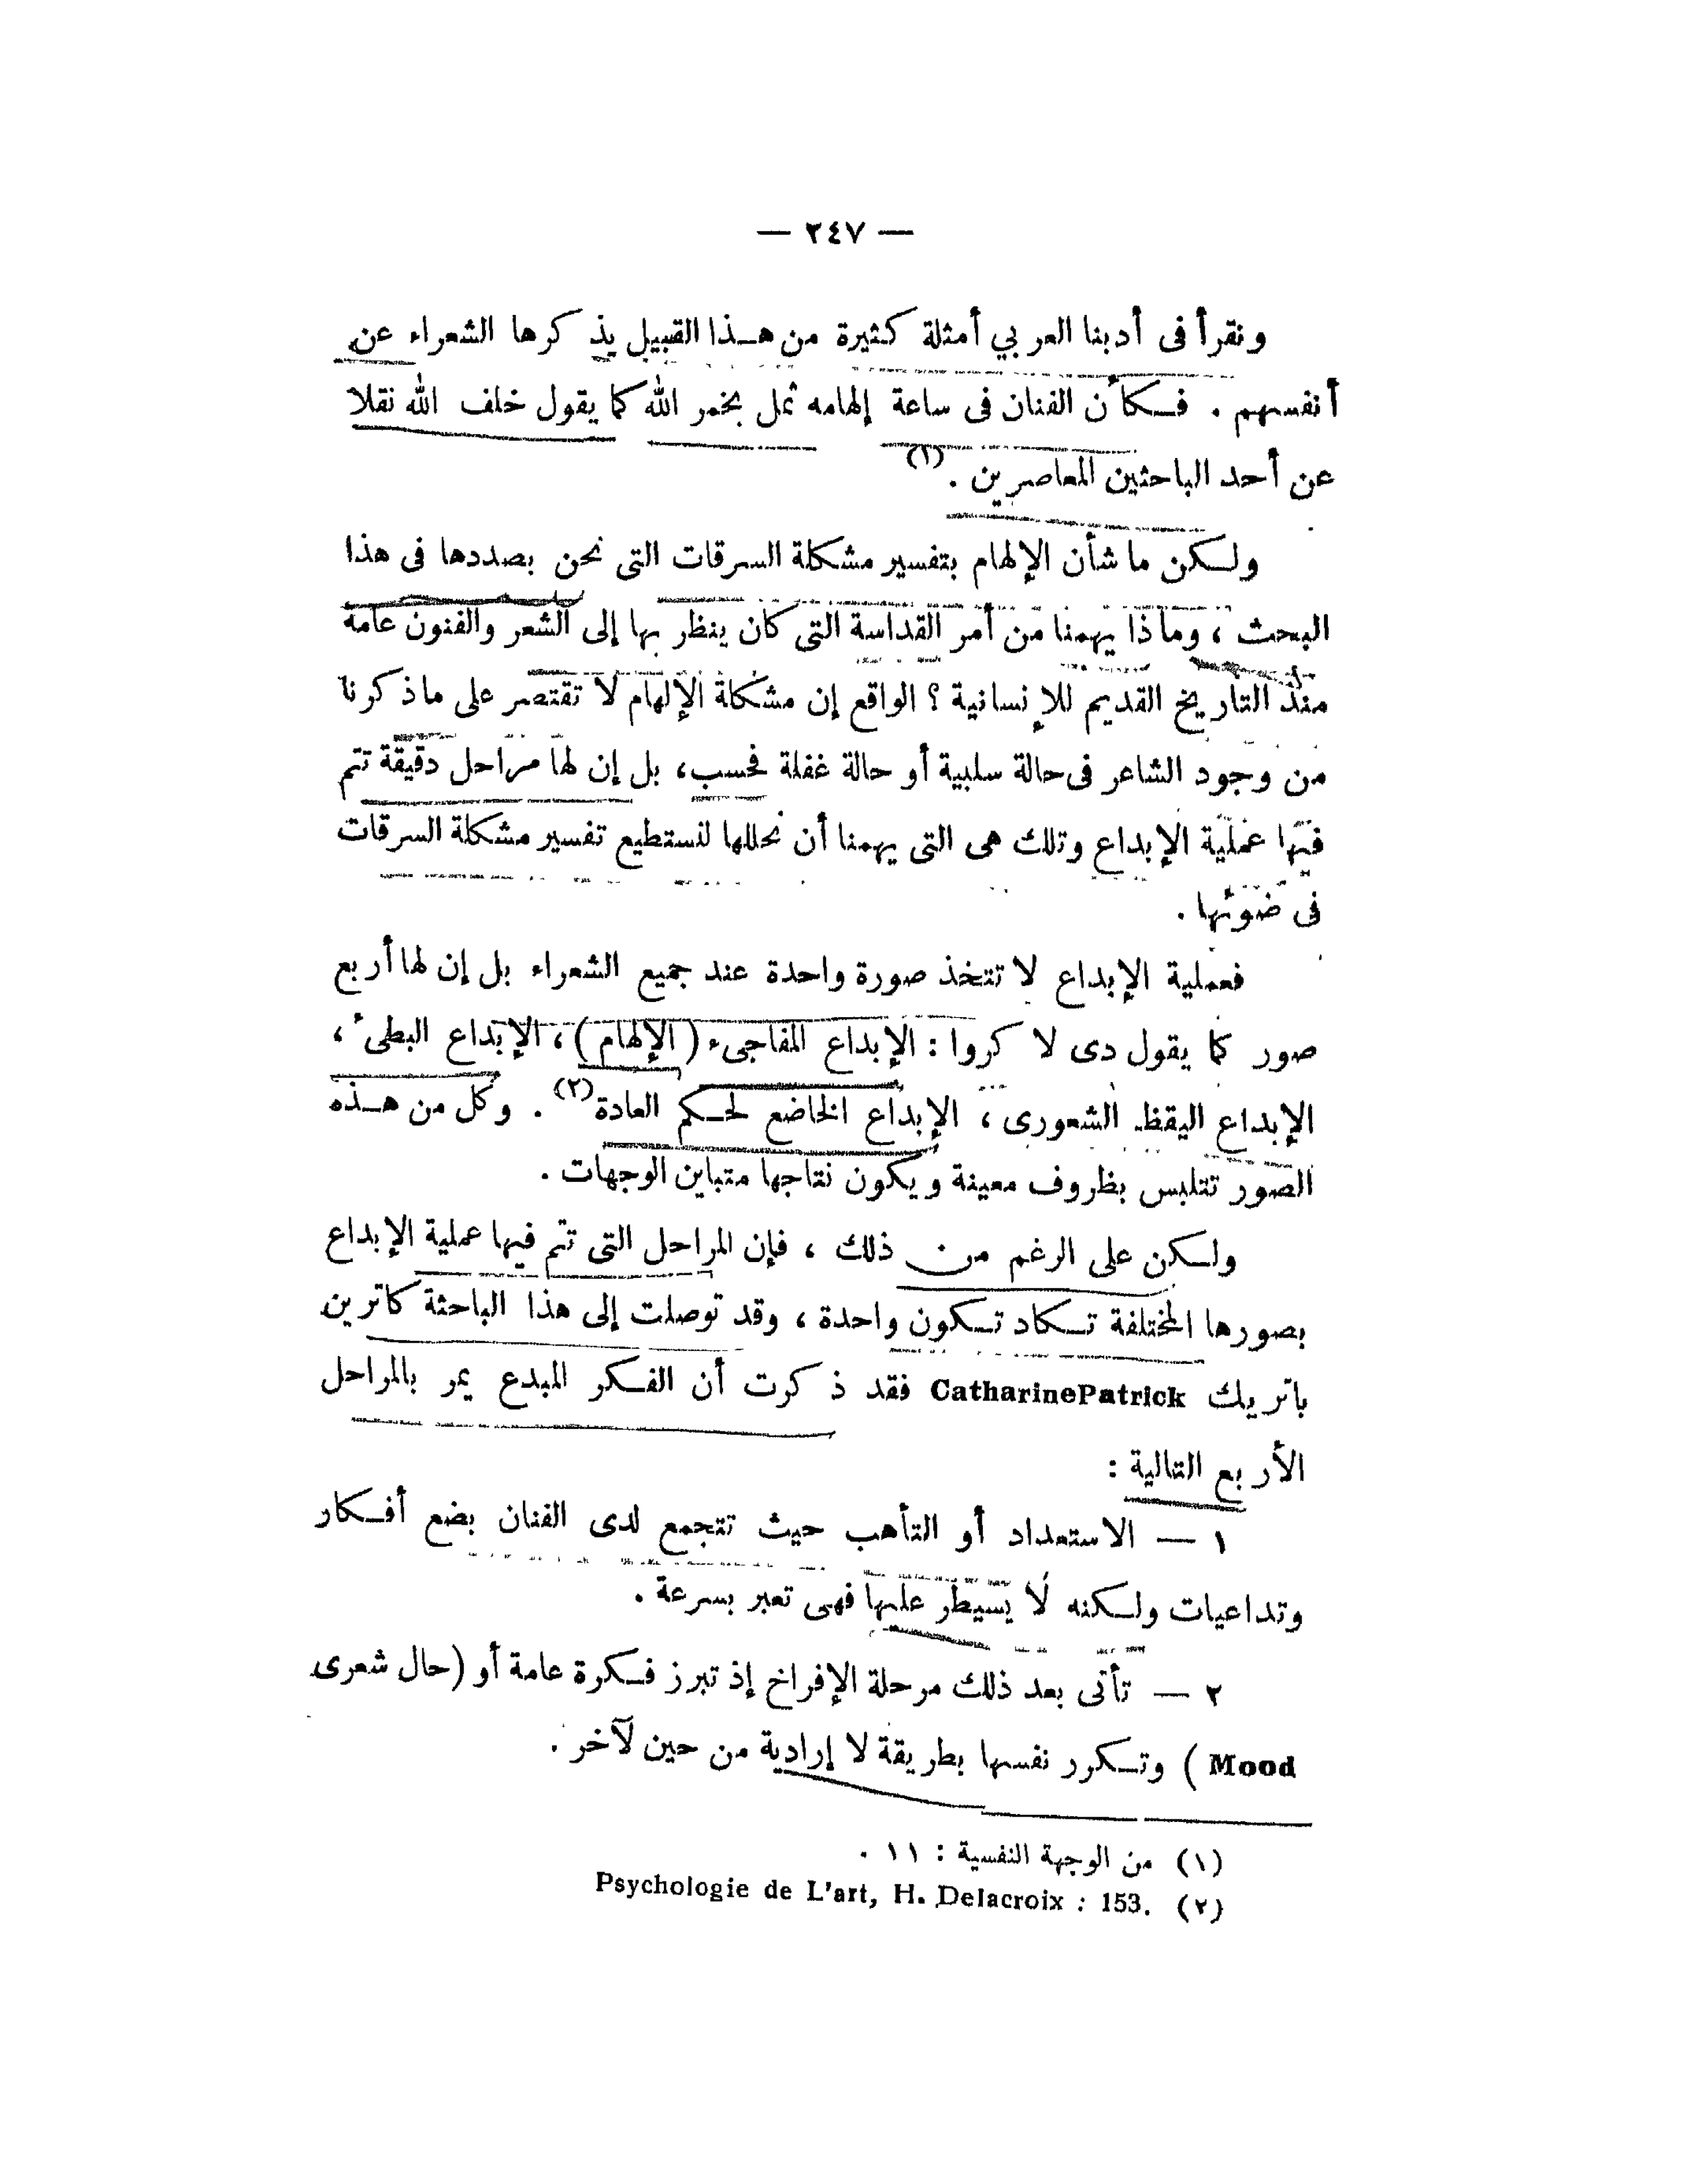 — ٢٤٧ —
ونقرأ فى أدبنا العربي أمثلة كثيرة من هــذا القبيل يذكرها الشعراء عن
أنفسهم . فــكأن الفنان فى ساعة إلهامه ثمل بخمر الله كما يقول خلف الله نقلا
عن أحد الباحثين المعاصرين .(١)
ولــكن ما شأن الإلهام بتفسير مشكلة السرقات التى نحن بصددها فى هذا
البحث ، وماذا يهمنا من أمر القداسة التى كان ينظر بها إلى الشعر والفنون عامة
منذ التاريخ القديم للإنسانية ؟ الواقع إن مشكلة الإلهام لا تقتصر على ماذكرنا
من وجود الشاعر فى حالة سلبية أو حالة غفلة فحسب، بل إن لها مراحل دقيقة تتم
فيها عملية الإبداع وتلك هى التى يهمنا أن نحللها لنستطيع تفسير مشكلة السرقات
فى ضوئها .
فعملية الإبداع لا تتخذ صورة واحدة عند جميع الشعراء بل إن لها أربع
صور كما يقول دى لا كروا : الإبداع المفاجىء ( الإلهام ) ، الإبداع البطىء ،
الإبداع اليقظ الشعورى ، الإبداع الخاضع لحــكم العادة(٢) . وكل من هــذه
الصور تتلبس بظروف معينة ويكون نتاجها متباين الوجهات .
ولــكن على الرغم من ذلك ، فإن المراحل التى تتم فيها عملية الإبداع
بصورها المختلفة تــكاد تــكون واحدة ، وقد توصلت إلى هذا الباحثة كاترين
باتريك CatharinePatrick فقد ذكرت أن الفــكر المبدع يمر بالمراحل
الأربع التالية :
١ — الاستعداد أو التأهب حيث تتجمع لدى الفنان بضع أفــكار
وتداعيات ولــكنه لا يسيطر عليها فهى تعبر بسرعة .
٢ — تأتى بعد ذلك مرحلة الإفراخ إذ تبرز فــكرة عامة أو (حال شعرى
Mood ) وتــكرر نفسها بطريقة لا إرادية من حين لآخر .
(١) من الوجهة النفسية : ١١ .
(٢) Psychologie de L'art, H. Delacroix : 153.